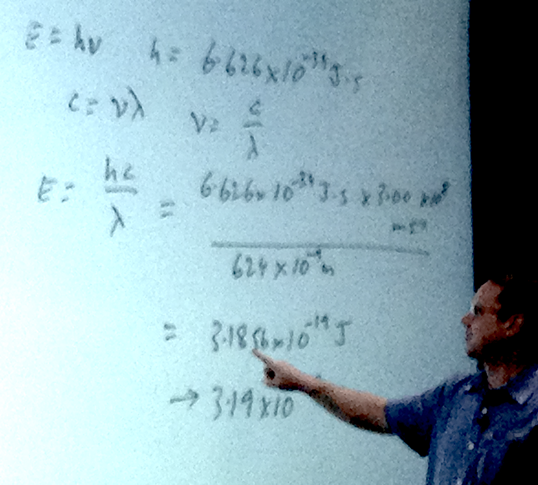 E = hν   h = 6.626×10⁻³⁴ J·s
c = νλ   ν = c/λ
E = hc/λ = 6.626×10⁻³⁴ J·s × 3.00 ×10⁸
m s⁻¹
624×10⁻⁹ m
= 3.1856×10⁻¹⁹ J
→ 3.19×10